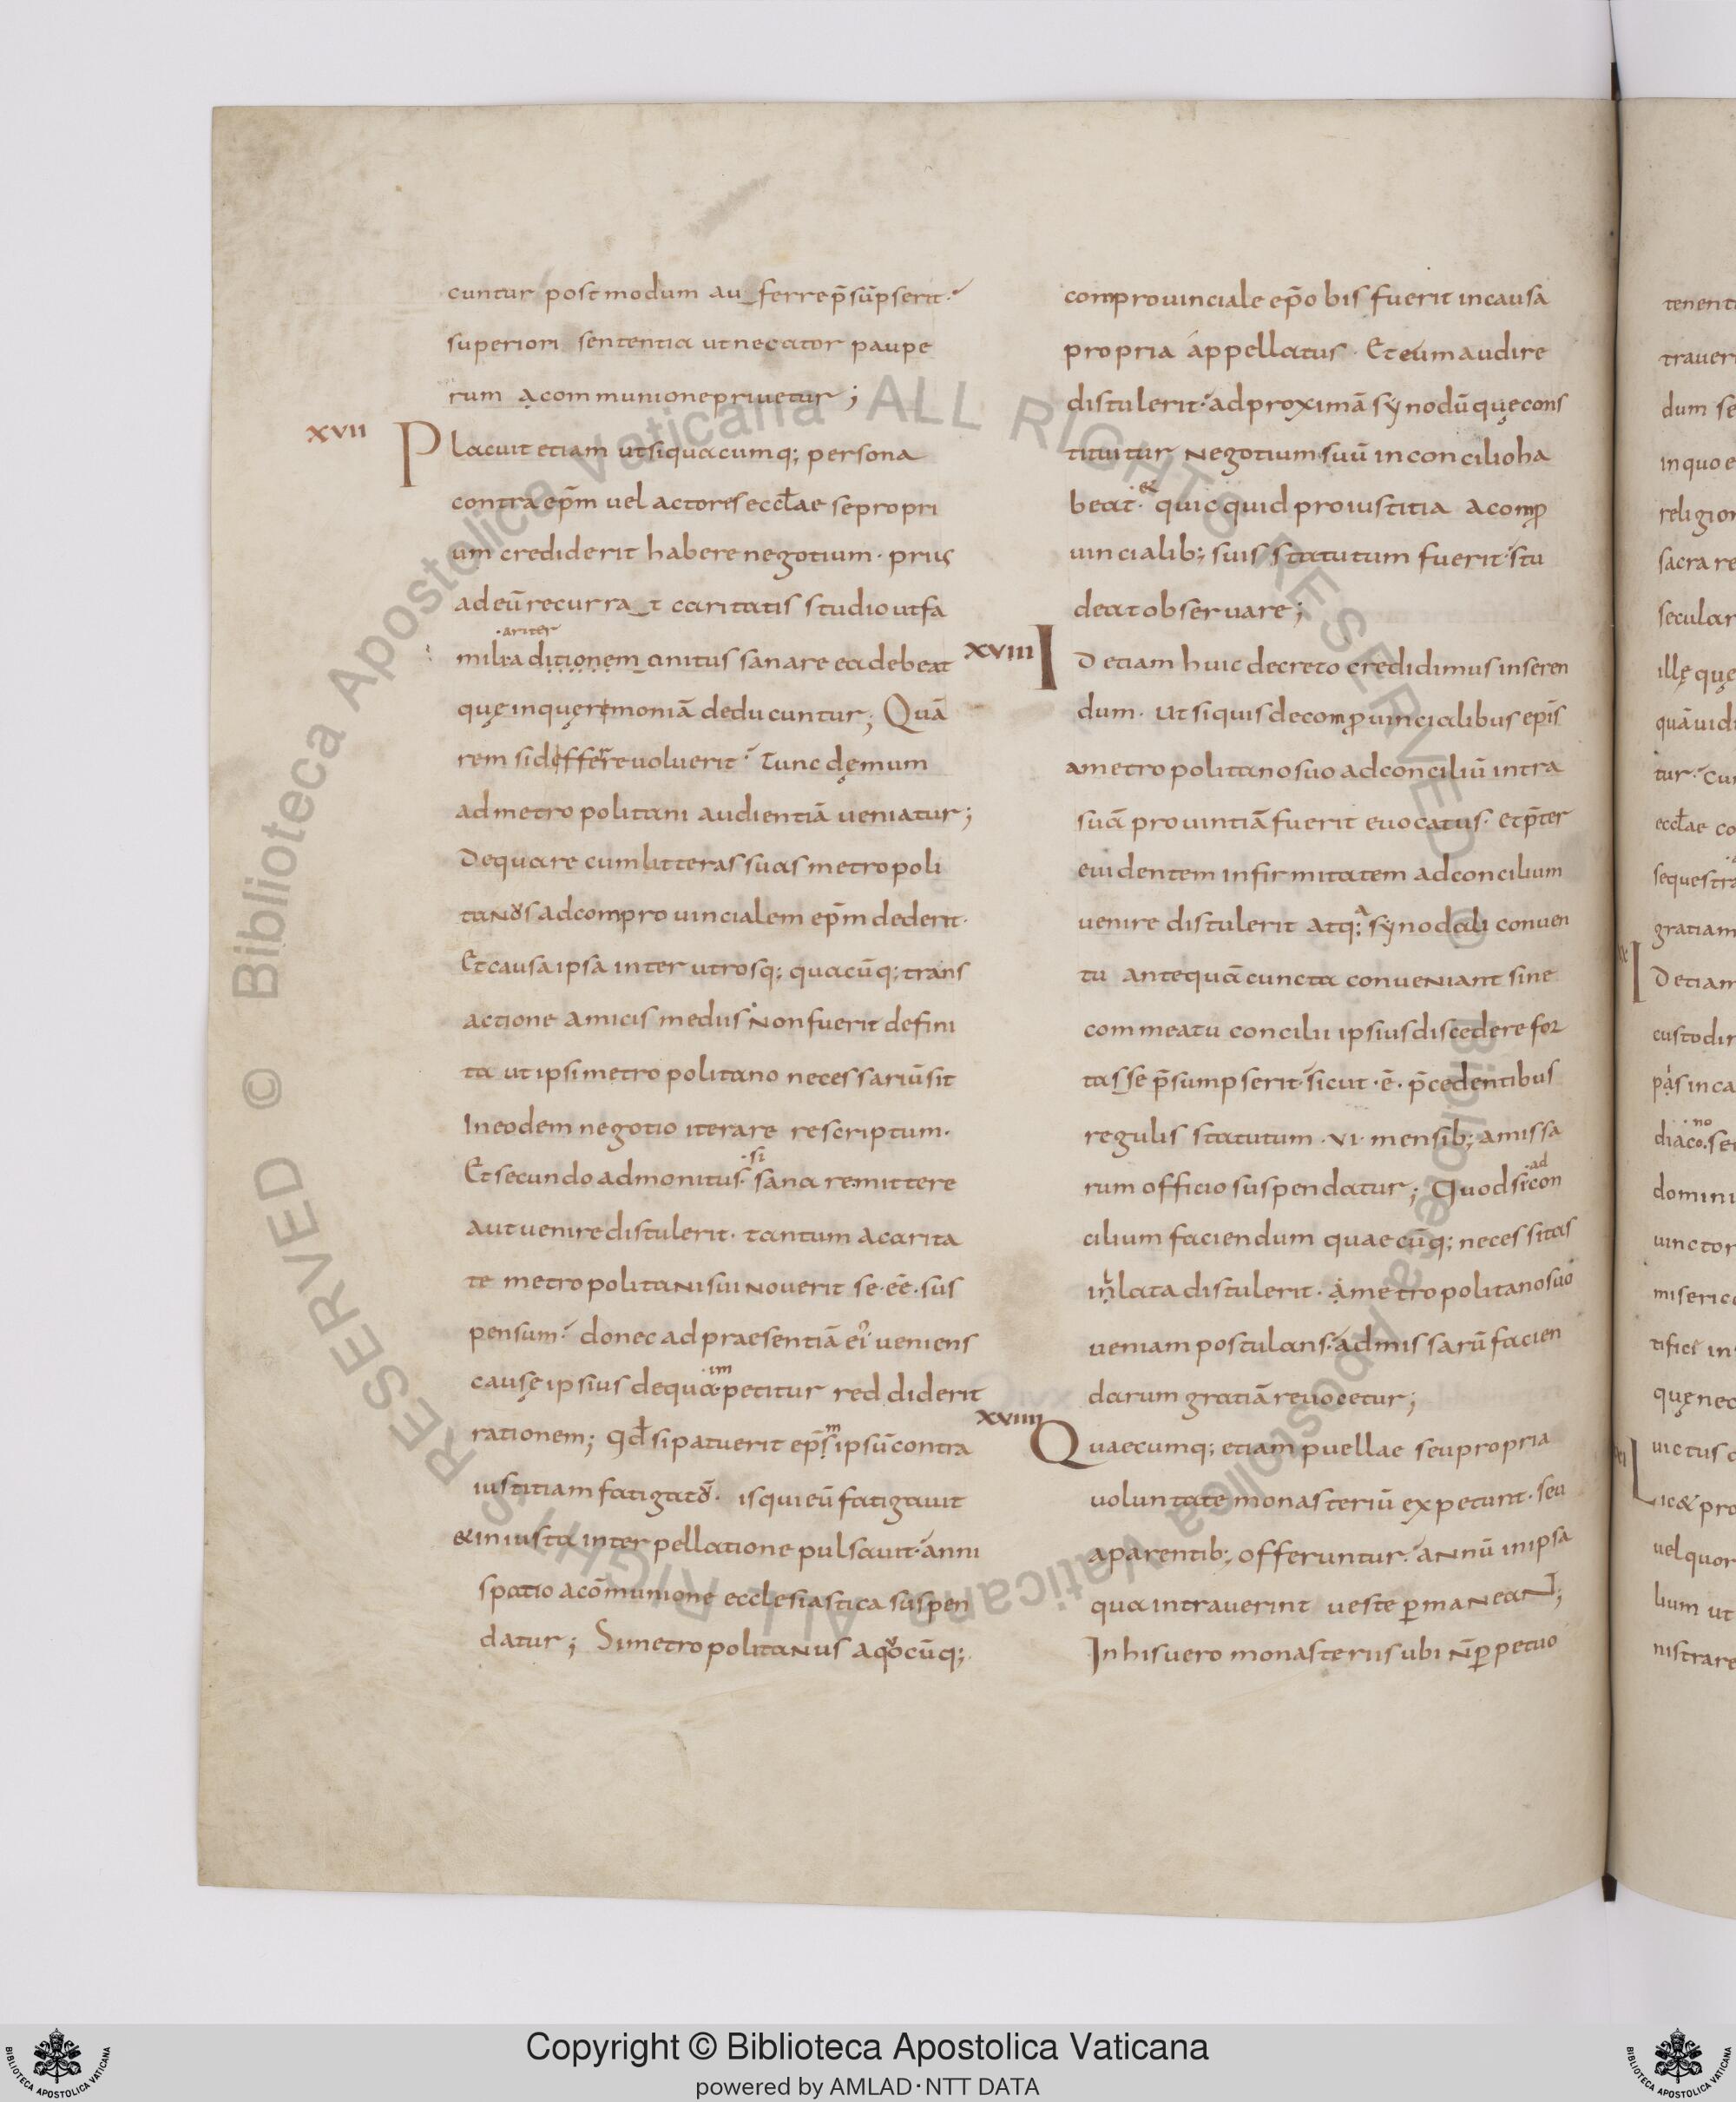 cuntur post modum au_ferre p̄sūpserit·
superiori sententia ut necator paupe
rum a communione privetur ;
XVII
Placuit etiam ut si quacumq; persona
contra ep̄m uel actores eccƚae se propri
um crediderit habere negotium · prius
ad eū recurra_t caritatis studio ut fa
·ariter
mili·a ditionem anitus sanare ea debeat
quę in quęremoniā deducuntur ; Quā
rem si differre uoluerit · Tunc dęmum
ad metropolitani audientiā veniatur ;
De qua re cum litteras suas metropoli
tanus ad comprouincialem ep̄m dederit ·
Et causa ipsa inter utrosq; quacūq; trans
actione amicis mediis non fuerit defini
ta ut ipsi metropolitano necessariū sit
In eodem negotio iterare rescriptum ·
·si
Et secundo admonitus · sana remittere
aut venire distulerit · tantum a carita
te metropolitani sui noverit se · eē · sus
pensum · donec ad praesentiā ei' veniens
·im
causę ipsius de qua · petitur red diderit
m
rationem ; qd̄ si patuerit ep̄s ipsū contra
iustitiam fatigatū · is qui eū fatigauit
& iniusta interpellatione pulsauit · anni
spatio a cōmunione ecclesiastica suspen
datur ; Si metropolitanus a quocūq;
comprouinciale ep̄o bis fuerit in causa
propria appellatus · Et eum audire
distulerit · ad proximā synodū quę cons
tituitur negotium suū in concilio ha
&
beat · quicquid pro iustitia a comp̱
uincialib; suis statutum fuerit · stu
deat observare ;
XVIII
Id etiam huic decreto credidimus inseren
dum · ut si quis de comp̱uincialibus ep̄is
a metropolitano suo ad conciliū intra
suā provintiā fuerit evocatus · et p̄ter
evidentem infirmitatem ad concilium
a
venire distulerit atq; synodali conven
tu antequā cuncta conveniant sine
commeatu concilii ipsius discedere for
tasse p̄sumpserit · sicut · ē · p̄cedentibus
regulis statutum · VI · mensib; a missa
·ad
rum officio suspendatur ; Quod si con
cilium faciendum quaecūq; necessitas
inlata distulerit · a metropolitano suo
veniam postulans · ad missarū facien
darum gratiā revocetur ;
XVIIII
Quaecumq; etiam puellae seu propria
voluntate monasteriū expetunt · seu
a parentib; offeruntur · annū in ipsa
qua intraverint veste p̱maneant ;
In his vero monasteriis ubi n̄ p̱petuo
tenent
dum se
in quo e
sacra re
secular
illę quę
gratiam
D etiam
domini
quę nec
lium ut
nistrare
© Biblioteca Apostolica Vaticana ALL RIGHTS RESERVED © Biblioteca Apostolica Vaticana ALL RIGHTS RESERVED
Copyright © Biblioteca Apostolica Vaticana
powered by AMLAD·NTT DATA
BIBLIOTECA APOSTOLICA VATICANA
BIBLIOTECA APOSTOLICA VATICANA